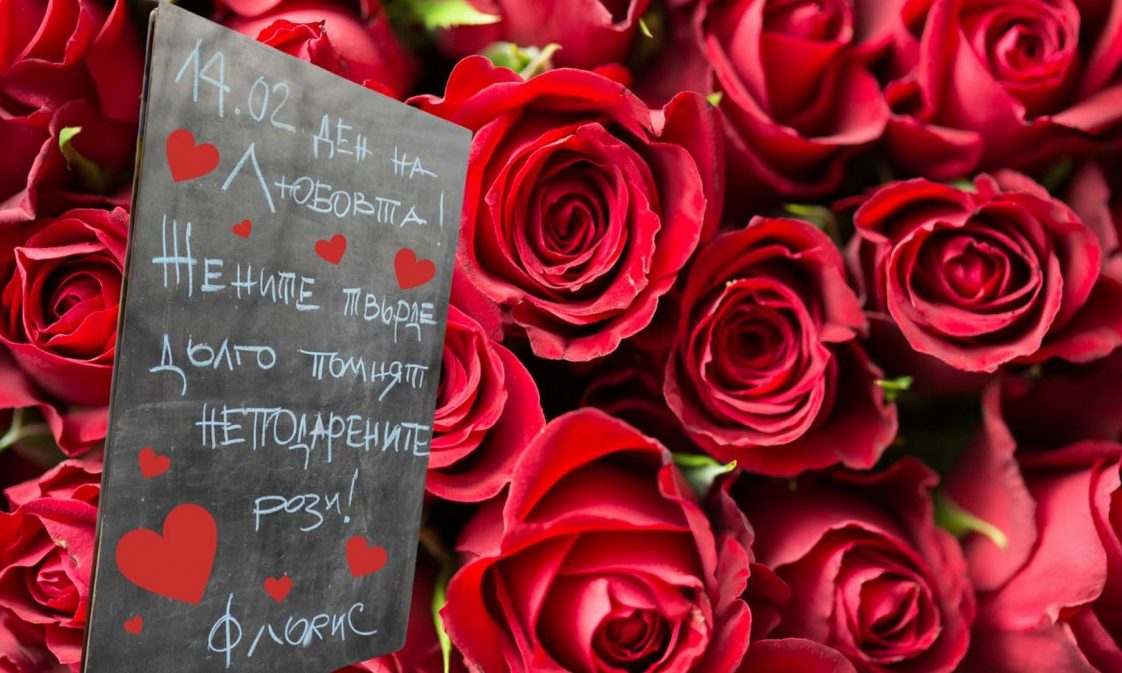 14.02 ДЕН НА
ЛЮБОВТА!
ЖЕНИТЕ ТВЪРДЕ
ДЪЛГО ПОМНЯТ
НЕПОДАРЕНИТЕ
РОЗИ!
ФЛОРИС